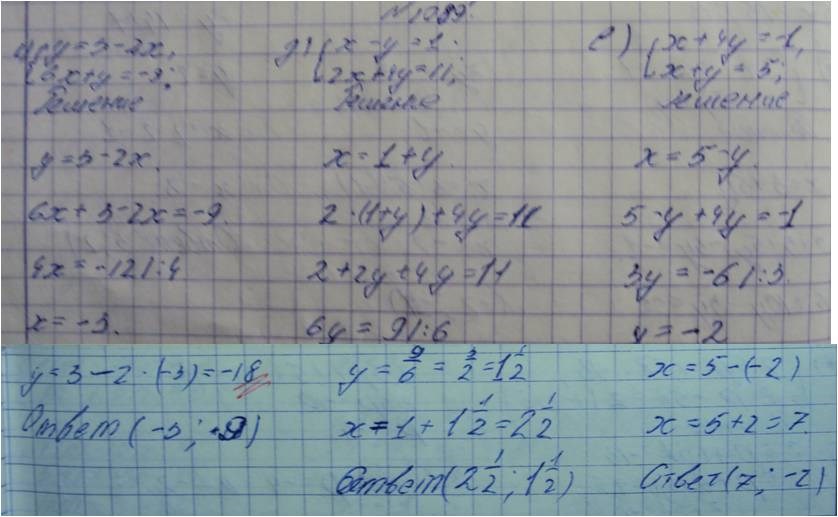 №1089.
г) { y = 3 - 2x,
{ 6x + y = -9;
Решение
y = 3 - 2x.
6x + 3 - 2x = -9.
4x = -12 | : 4
x = -3.
y = 3 - 2 · (-3) = -18
Ответ (-3; 9)
д) { x - y = 1.
{ 2x + 4y = 11;
Решение
x = 1 + y.
2 · (1 + y) + 4y = 11
2 + 2y + 4y = 11
6y = 9 | : 6
y = 9/6 = 3/2 = 1 1/2
x = 1 + 1 1/2 = 2 1/2
Ответ (2 1/2; 1 1/2)
е) { x + 4y = -1,
{ x + y = 5;
Решение
x = 5 - y.
5 - y + 4y = -1
3y = -6 | : 3.
y = -2
x = 5 - (-2)
x = 5 + 2 = 7.
Ответ (7; -2)